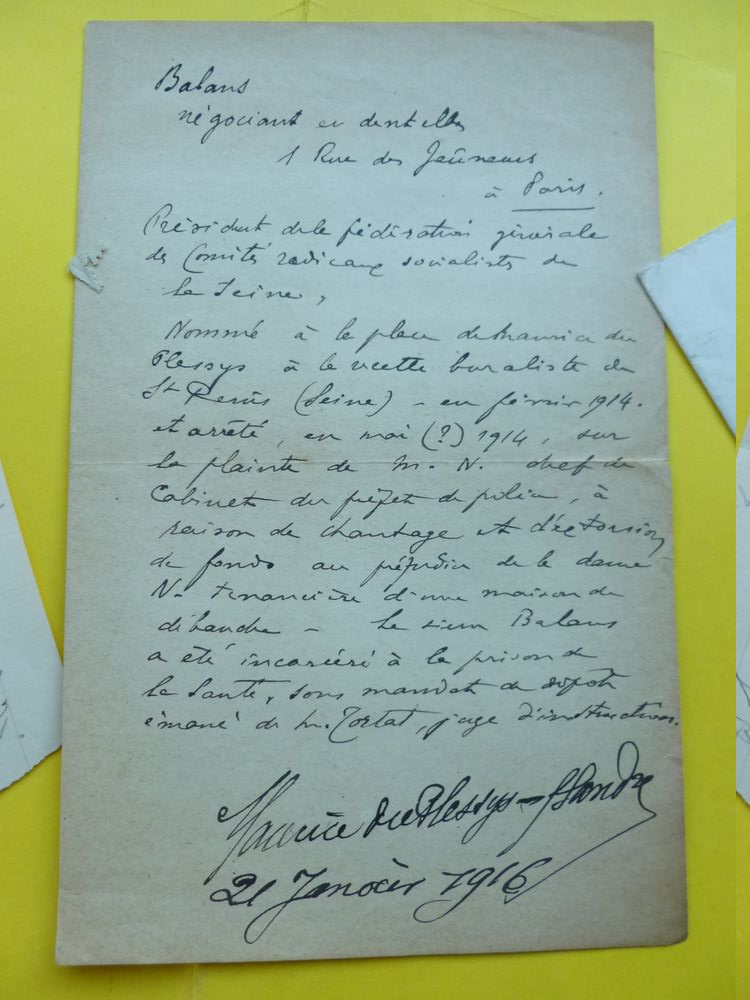 Balans
négociant en dentelles
1 Rue des Jeûneurs
à Paris.
Président de la fédération générale
des Comités radicaux socialistes de
la Seine,
Nommé à la place de Maurice du
Plessys à la recette buraliste de
St Denis (Seine) - en février 1914.
et arrêté, en mai (?) 1914, sur
la plainte de M. N. chef de
Cabinet du préfet de police, à
raison de chantage et d'extorsion
de fonds au préjudice de la dame
N. tenancière d'une maison de
débauche - Le sieur Balans
a été incarcéré à la prison de
la Santé, sous mandat de dépôt
émané de M. Tortat, juge d'instruction.
Maurice du Plessys-Flandre
21 Janvier 1916